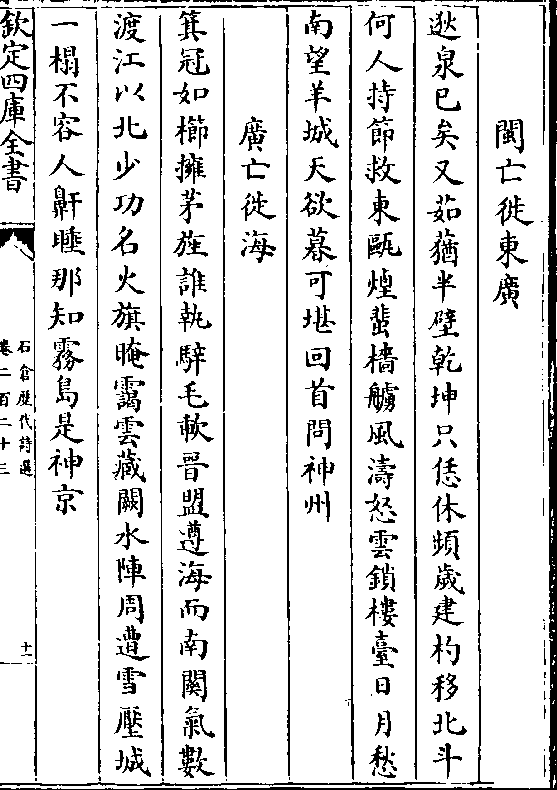 閩亡徙東廣
逖泉已矣又茹蕕半壁乾坤只恁休頻歲建杓移北斗
何人持節救東甌煌蜚檣艣風濤怒雲鎖樓臺日月愁
南望羊城天欲暮可堪回首問神州
廣亡徙海
箕冠如櫛擁茅旌誰執騂毛軟晉盟遵海而南關氣數
渡江以北少功名火旗晻靄雲藏闕水陣周遭雪壓城
一榻不容人鼾睡那知霧島是神京
欽定四庫全書
石倉歷代詩選
卷二百二十三
十一